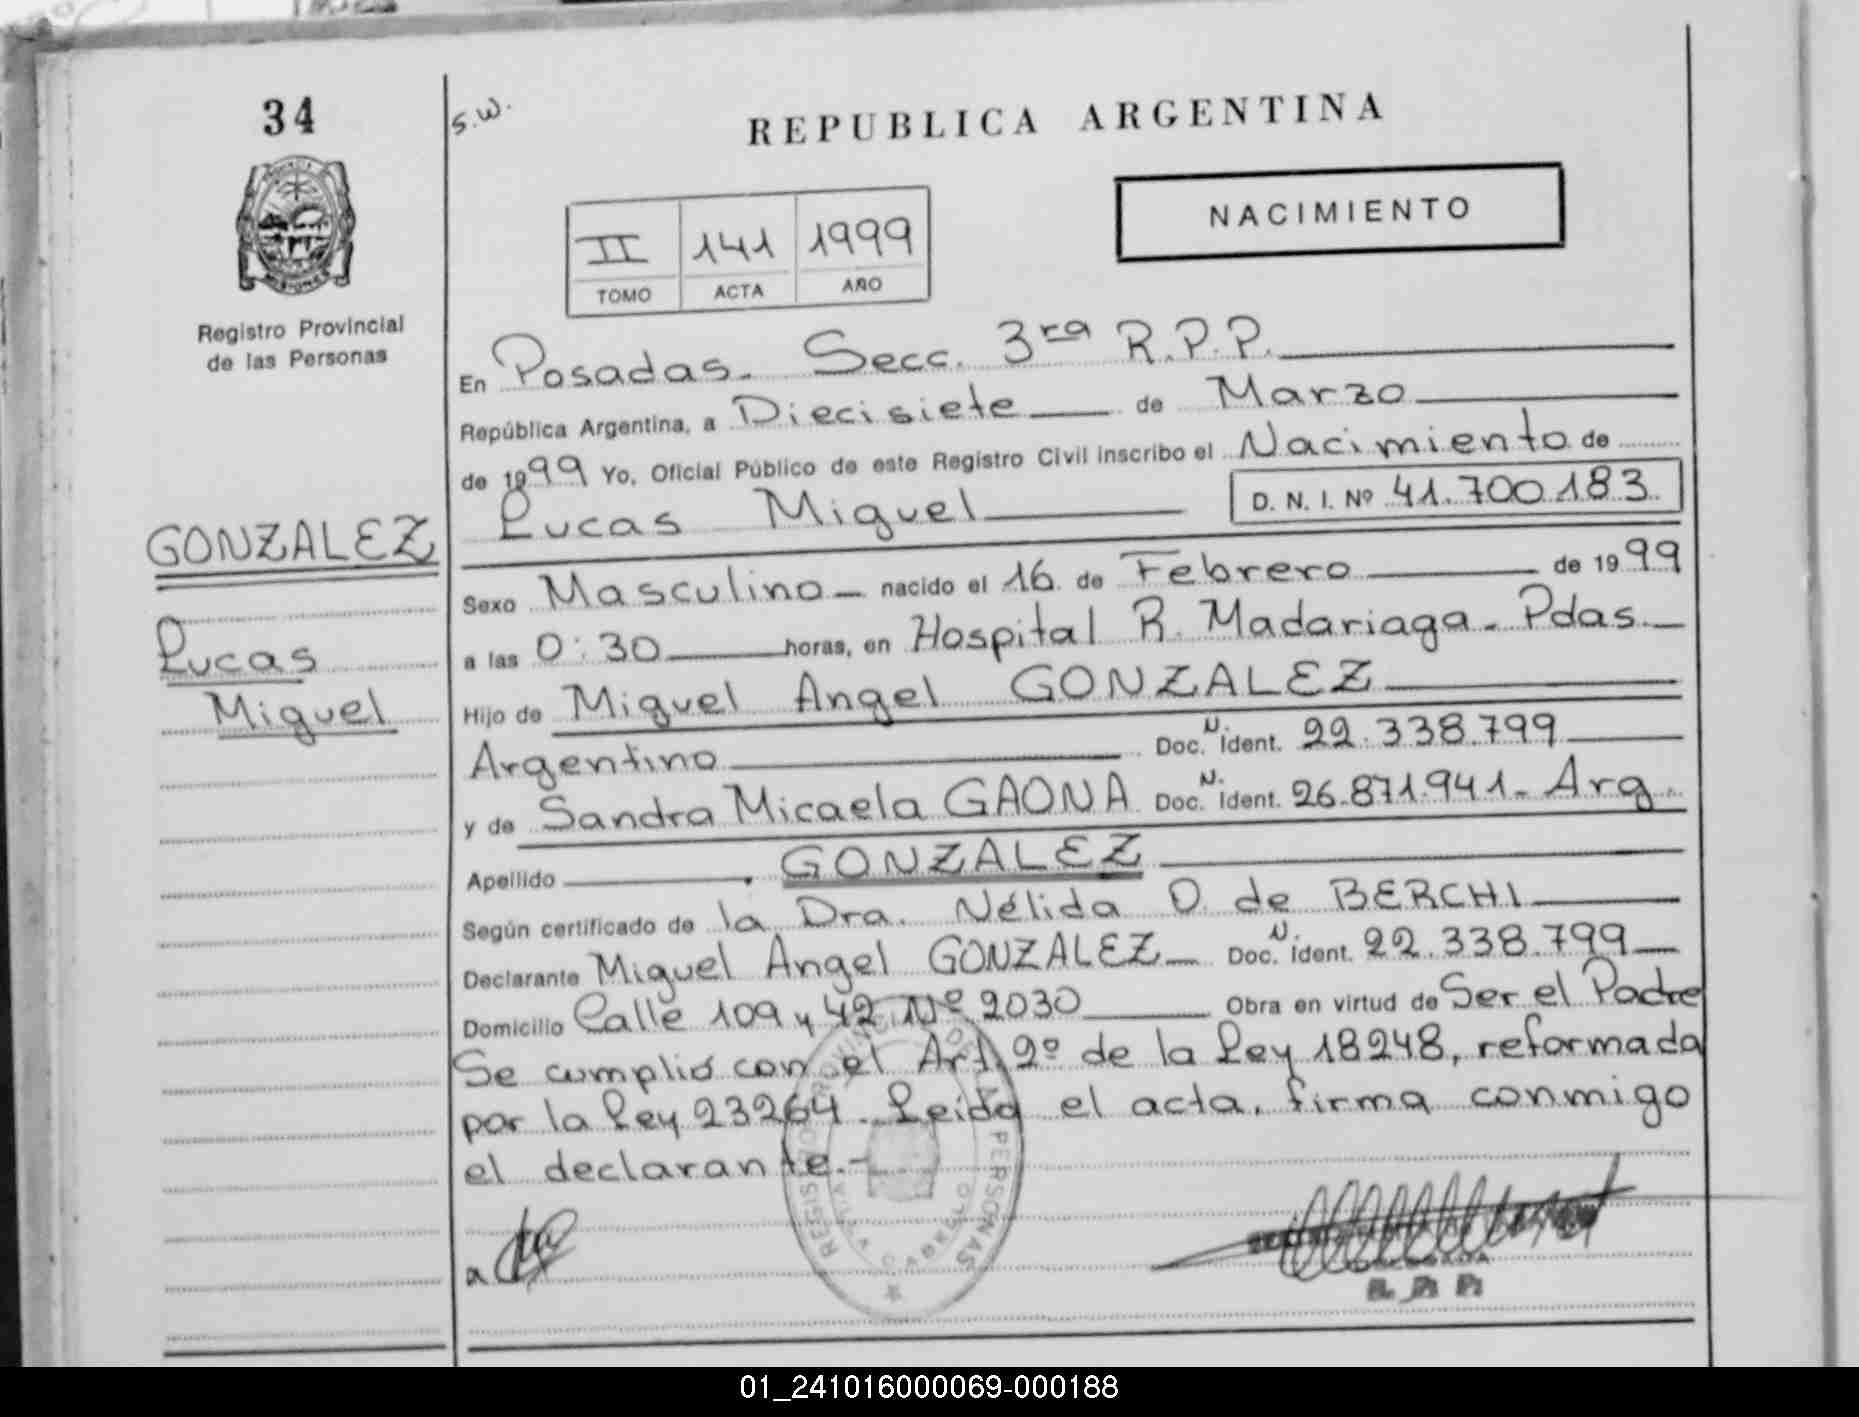 34
s.w.
REPUBLICA ARGENTINA
NACIMIENTO
II 141 1999
TOMO ACTA AÑO
Registro Provincial
de las Personas
GONZALEZ
Lucas
Miguel
En Posadas. Secc. 3ra R.P.P.
República Argentina, a Diecisiete de Marzo
de 1999 Yo, Oficial Público de este Registro Civil inscribo el Nacimiento de
Lucas Miguel D. N. I. Nº 41.700.183
Sexo Masculino nacido el 16 de Febrero de 1999
a las 0:30 horas, en Hospital R. Madariaga - Pdas.
Hijo de Miguel Angel GONZALEZ
Argentino Doc. N. ident. 22.338.799
y de Sandra Micaela GAONA Doc. N. ident. 26.871.941 - Arg.
Apellido GONZALEZ
Según certificado de la Dra. Nélida O. de BERCHI
Declarante Miguel Angel GONZALEZ Doc. N. ident. 22.338.799
Domicilio Calle 109 y 42 Nº 2030 Obra en virtud de Ser el Padre
Se cumplió con el Art. 2º de la Ley 18248, reformada
por la Ley 23264. Leida el acta, firma conmigo
el declarante.-
REGISTRO PROVINCIAL DE LAS PERSONAS
VILLA CABELLO
01_241016000069-000188